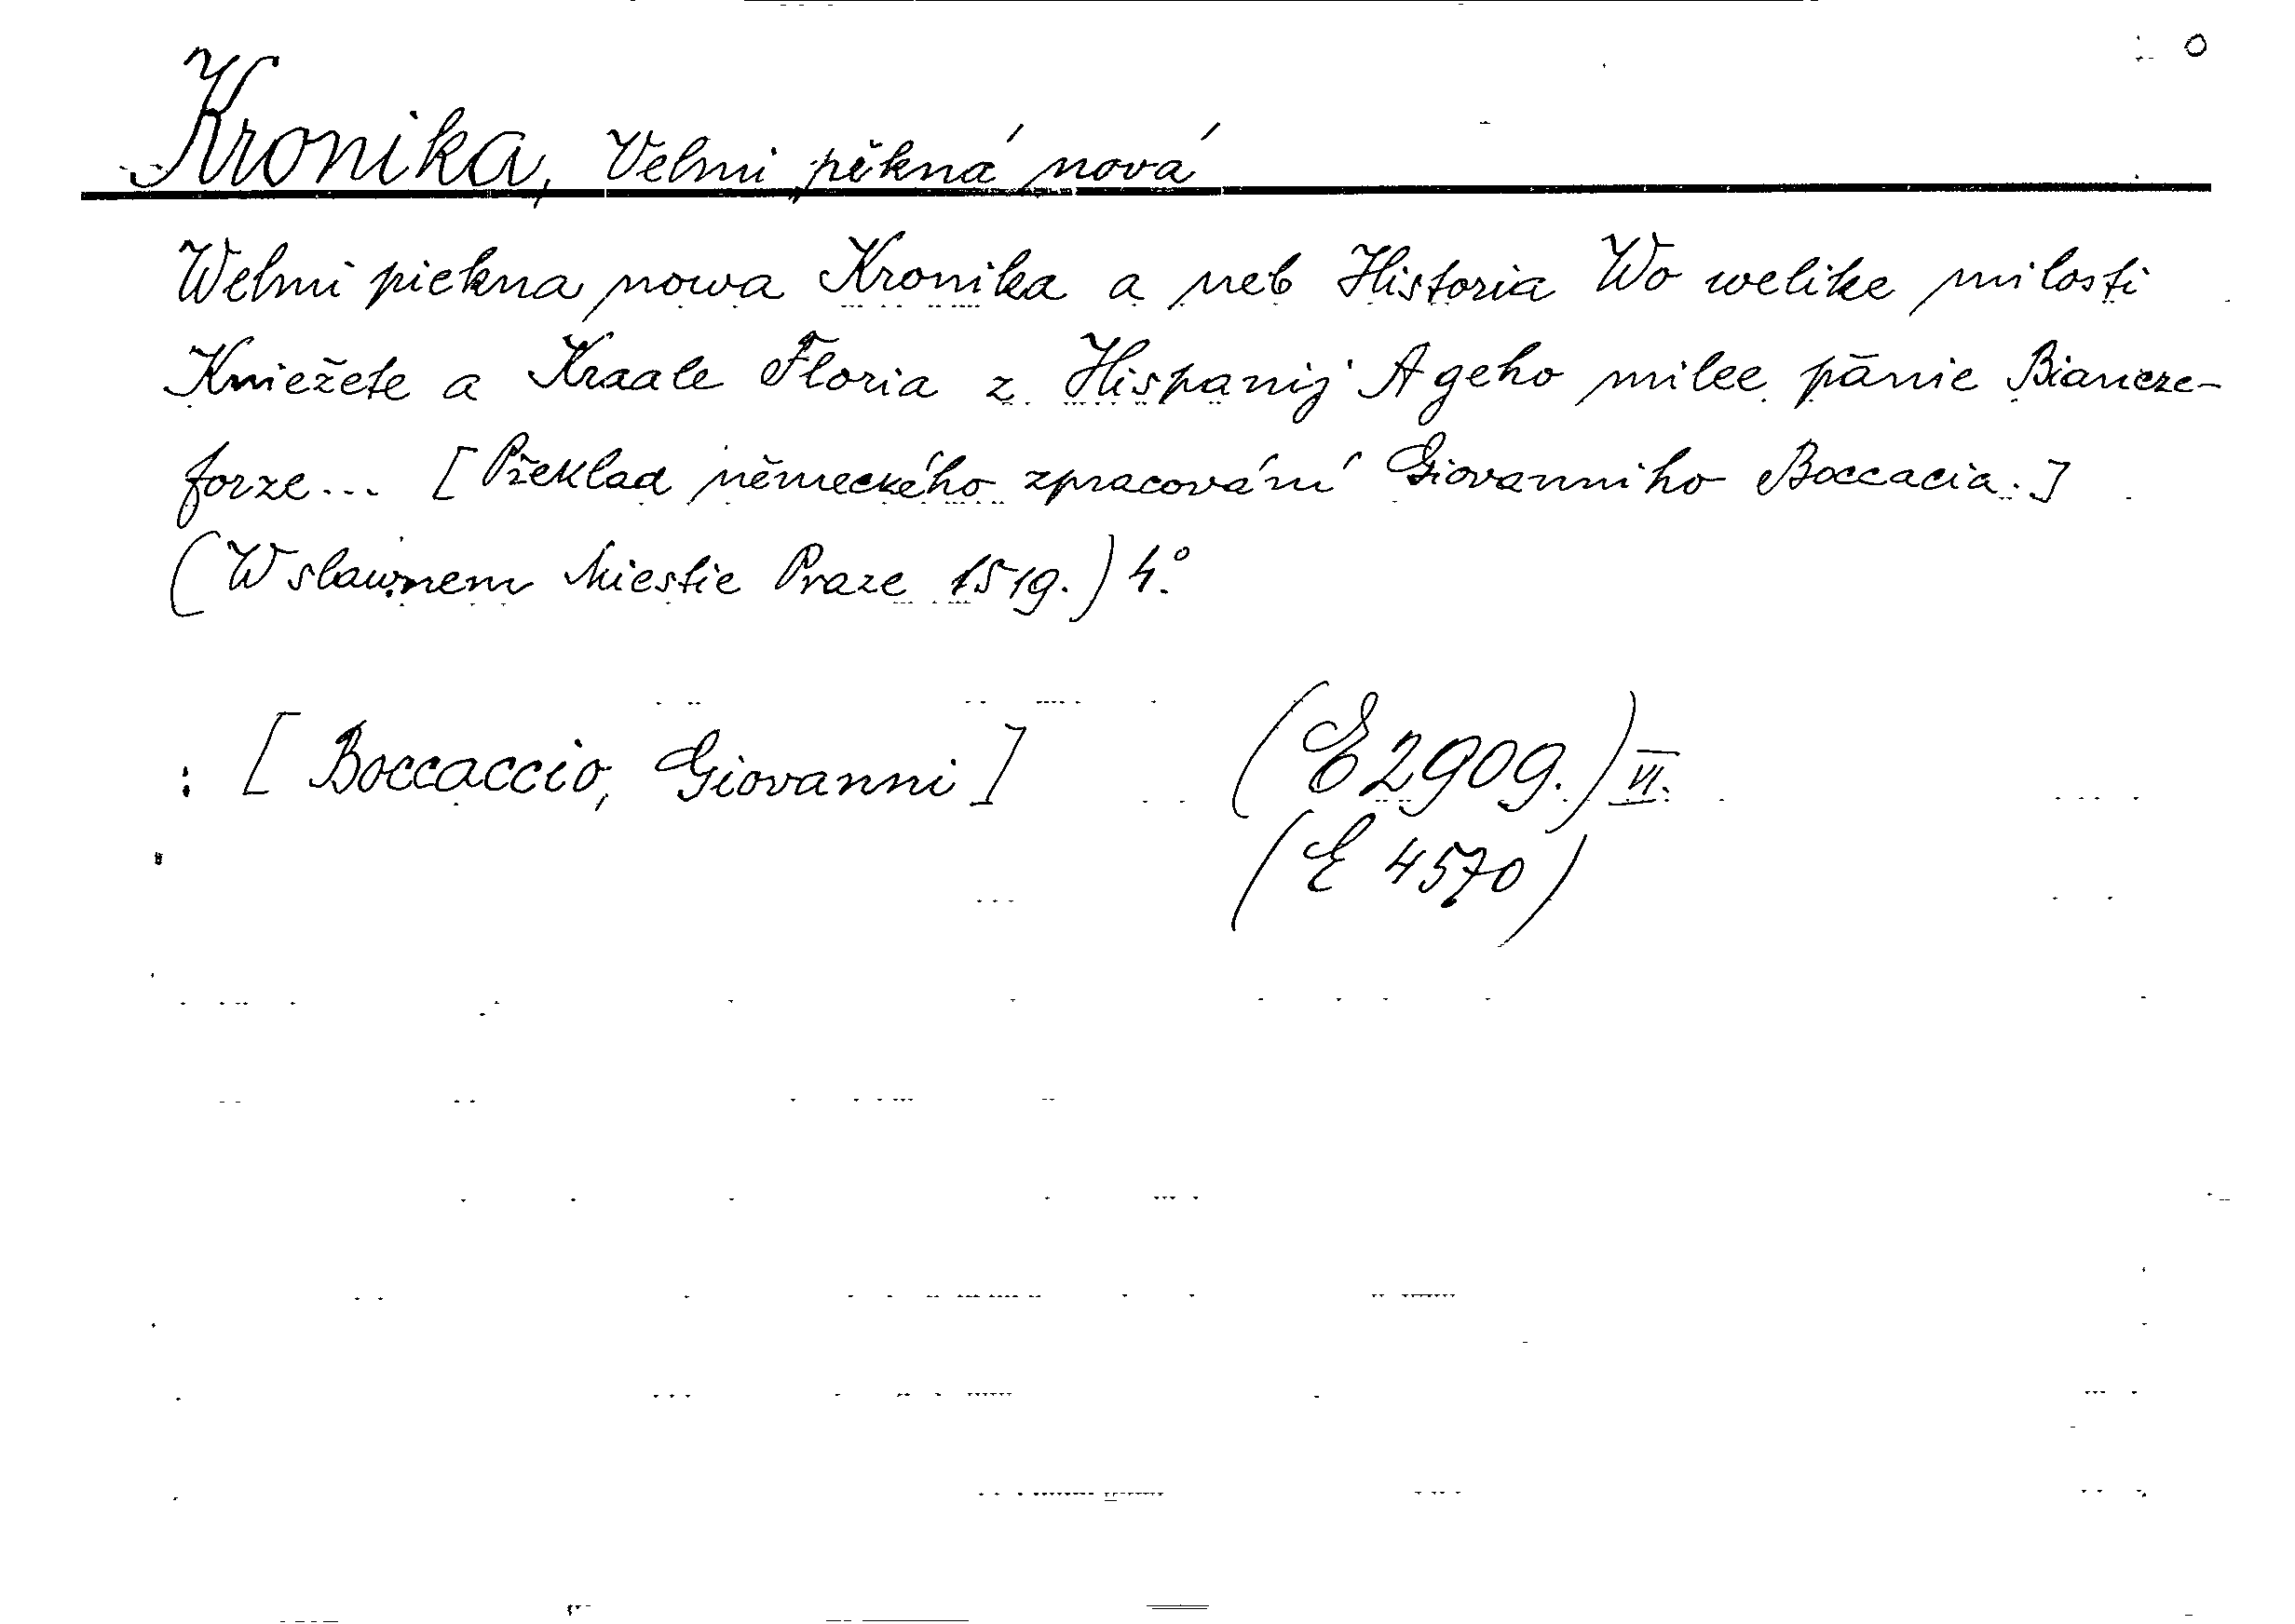 Kronika, Velmi pěkná nová
Welmi piekna nowa Kronika a neb Historia Wo welike milosti
Kniežete a Kraale Floria z Hispanij A geho milee pānie Biancze-
forze... [Překlad německého zpracování Giovanniho Boccacia.]
(W slawnem Miestie Praze 1519.) 4°.
: [Boccaccio, Giovanni] (E 2909.) VI.
(E 4570)